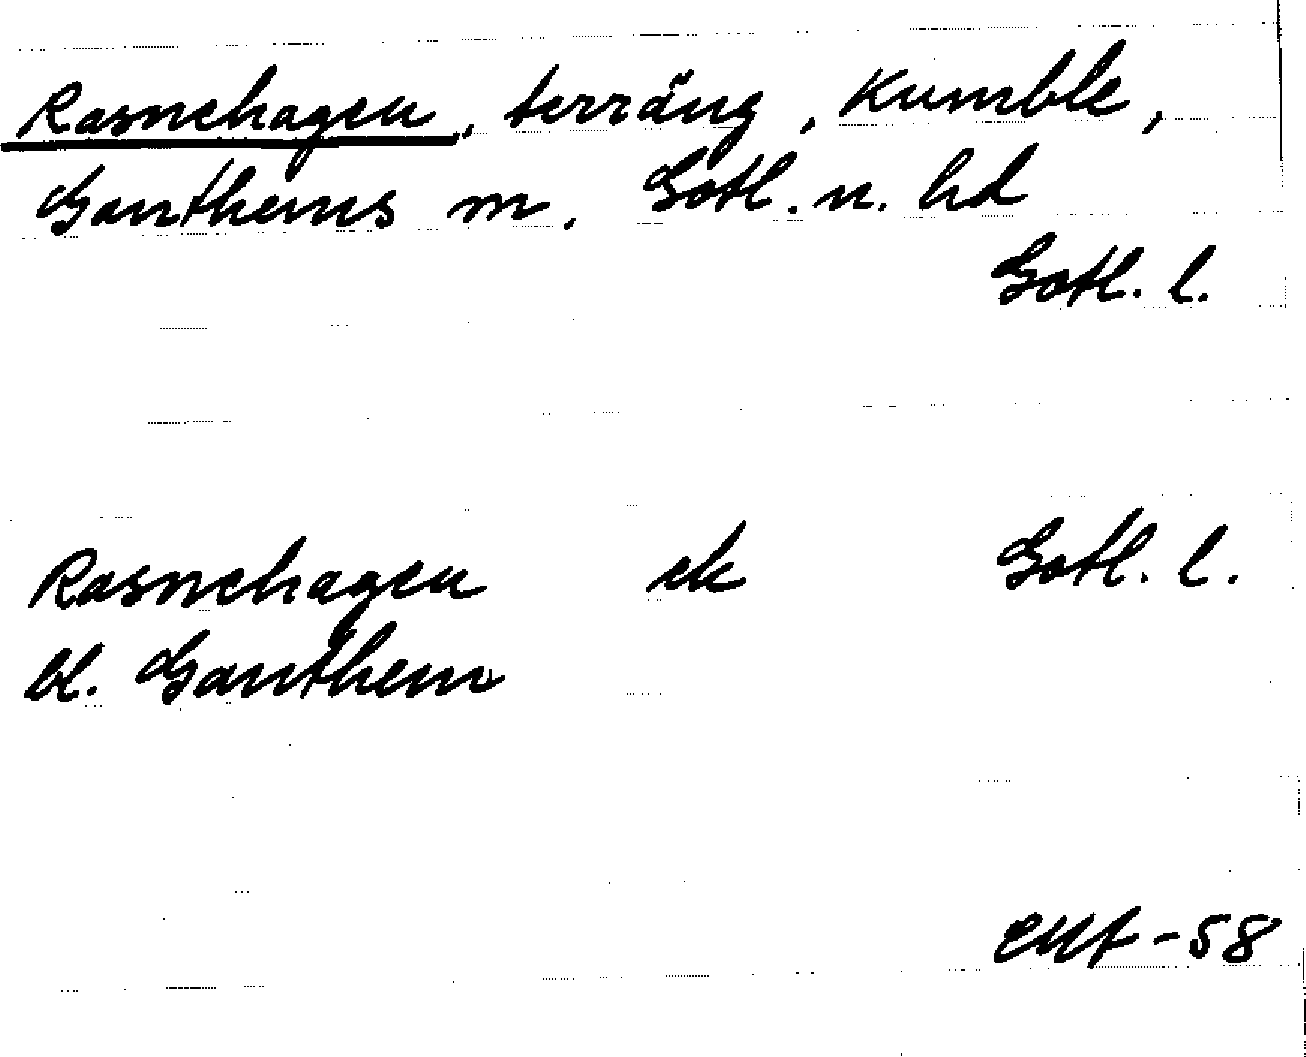 Rasnehagen, terräng, Kumble,
Ganthems m. Gotl. n. hd
Gotl. l.
Rasnehagen ek Gotl. l.
bl. Ganthem
-58